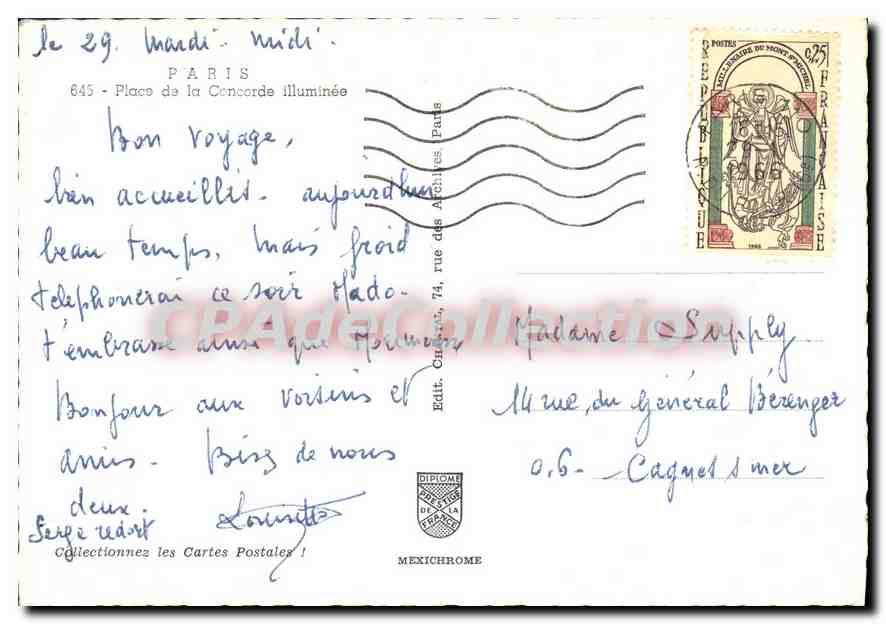 le 29. Mardi - midi -
PARIS
645 - Place de la Concorde illuminée
Bon voyage,
bien accueillis - aujourd'hui
beau temps, mais froid
telephonerai ce soir Mado -
t'embrasse ainsi que
Bonjour aux voisins et
amis - Bises de nous
deux.
Serge redort
Collectionnez les Cartes Postales !
Edit. 74, rue des Archives, Paris
DIPLOME
PRESTIGE
DE LA
FRANCE
MEXICHROME
POSTES
0,25
MILLENAIRE DU MONT-ST-MICHEL
REPUBLIQUE
FRANÇAISE
1966
1966
Madame Supply
14 rue du Général Bérenger
06 - Cagnes s mer
CPAdeCollection